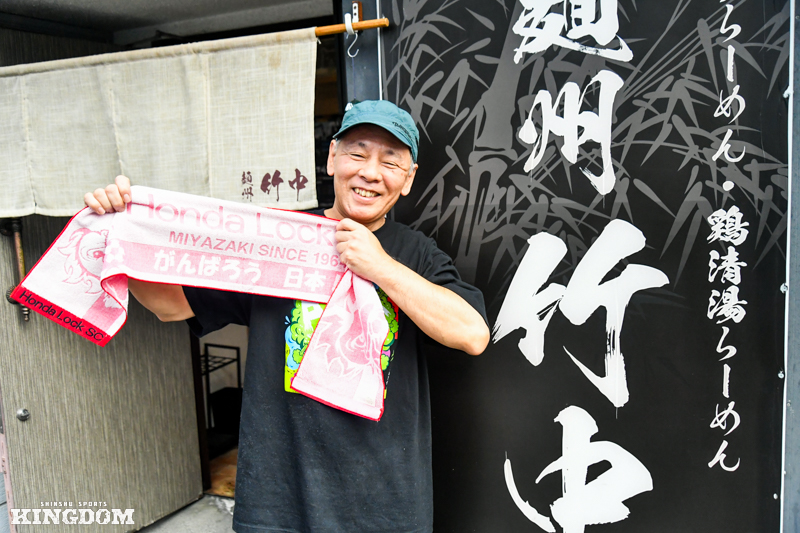 麺州 竹中
Honda Lock
MIYAZAKI SINCE 196
がんばろう 日本
Honda Lock SC
麺州竹中
らーめん・鶏清湯らーめん
SHINSHU SPORTS
KINGDOM